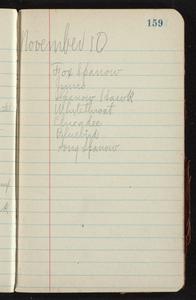 159
November 10
Fox Sparrow
Junco
Sparrow Hawk
Whitethroat
Chicadee
Bluebird
Song Sparrow